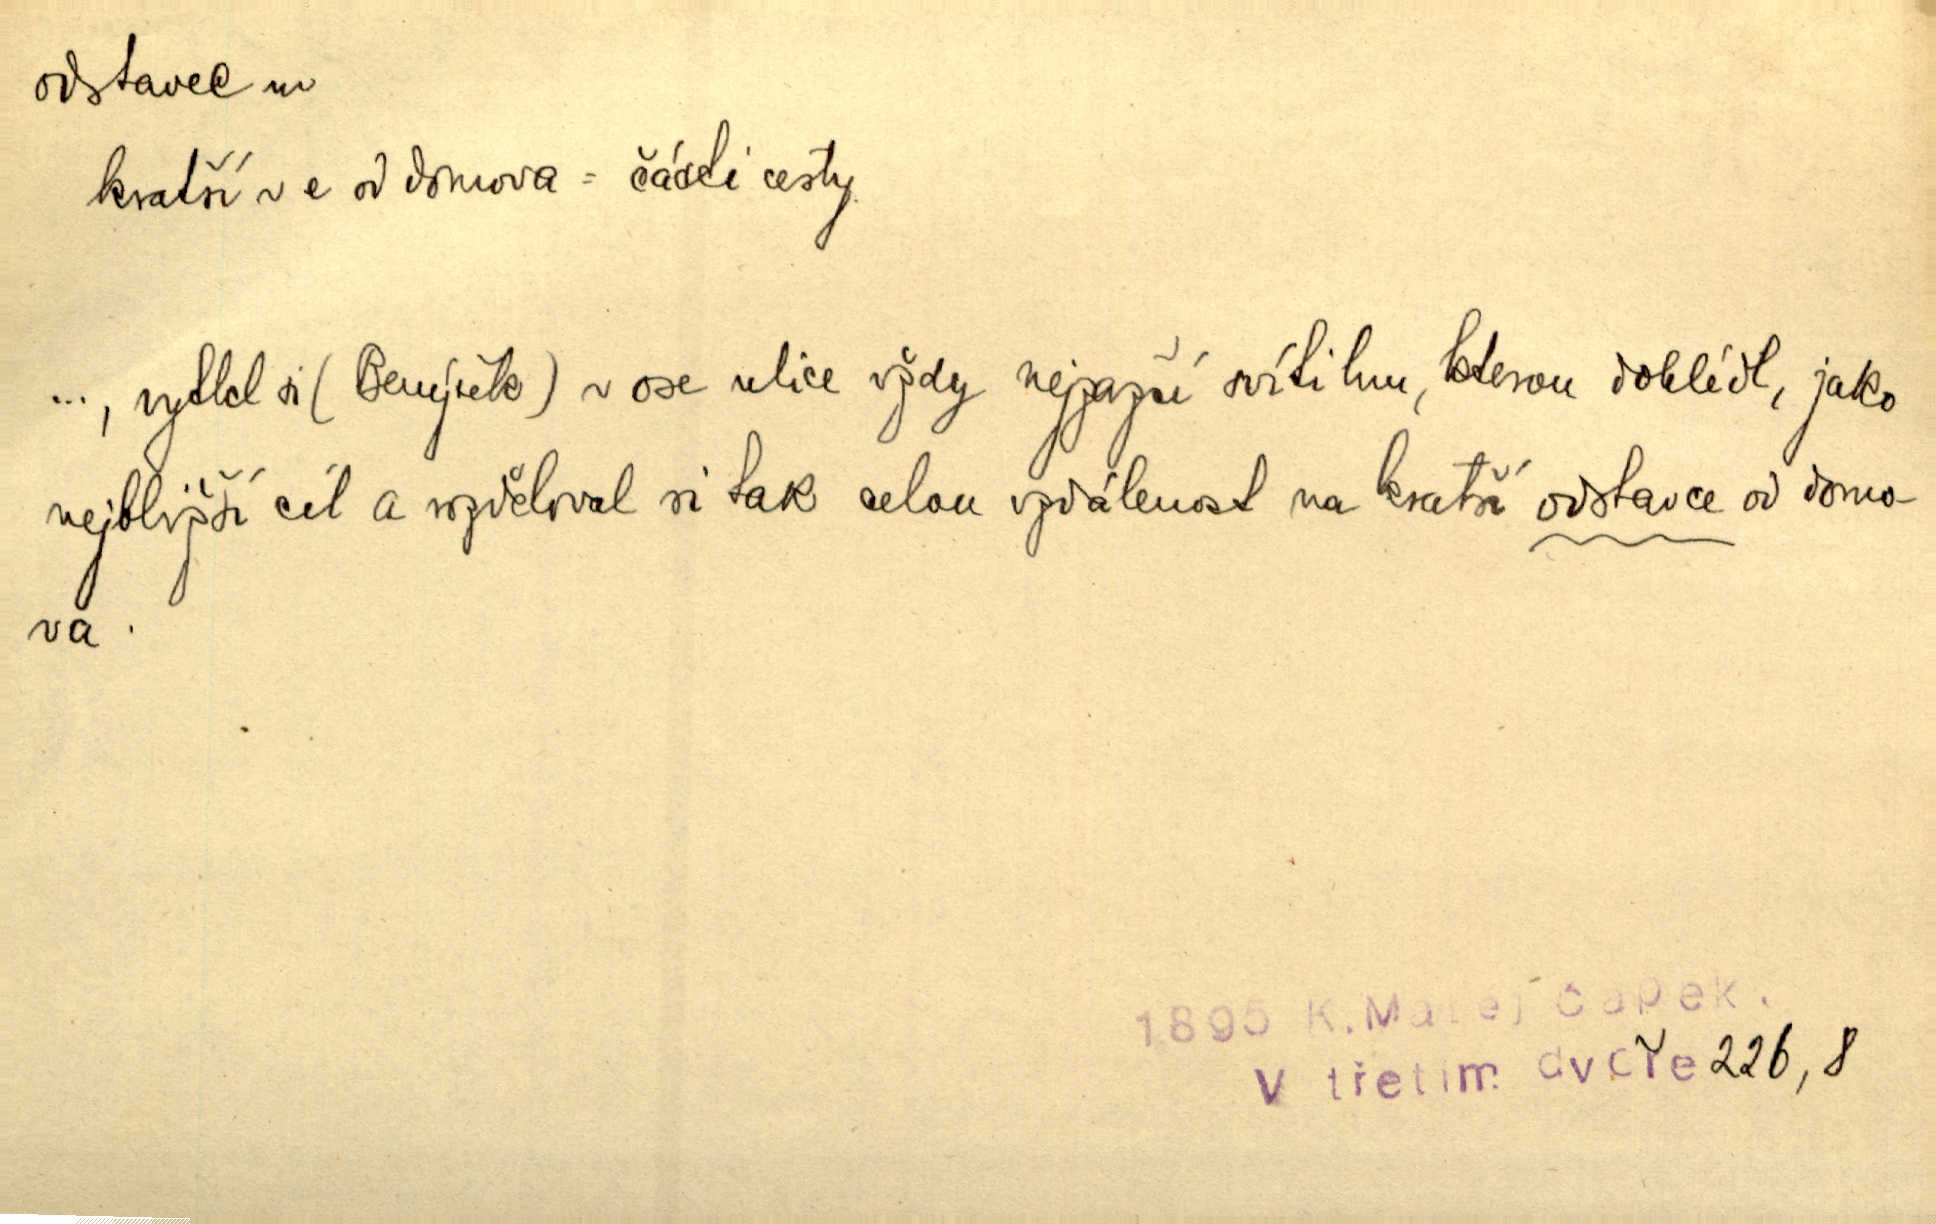 odstavec m
kratší v e od domova = části cesty
..., vytkl si ( ) v ose ulice vždy nejzazší svítilnu, kterou dohlédl, jako
nejbližší cíl a rozděloval si tak celou vzdálenost na kratší odstavce od domo-
va.
1895 K. Matěj Čapek.
V třetím dvoře 226,8